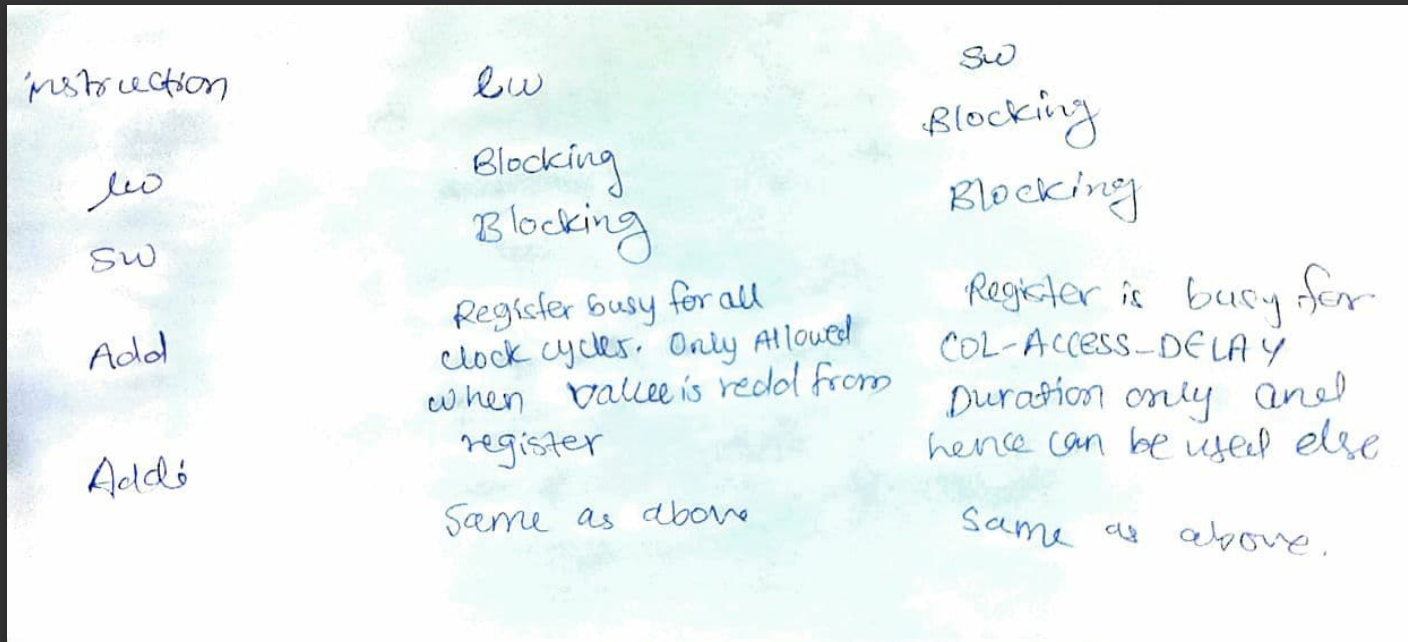 instruction lw sw
Blocking
lw Blocking
Blocking
sw Blocking
Add Register busy for all
clock cycles. Only Allowed
when value is read from
register
Register is busy for
COL-ACCESS-DELAY
Duration only and
hence can be used else
Addi Same as above
Same as above.